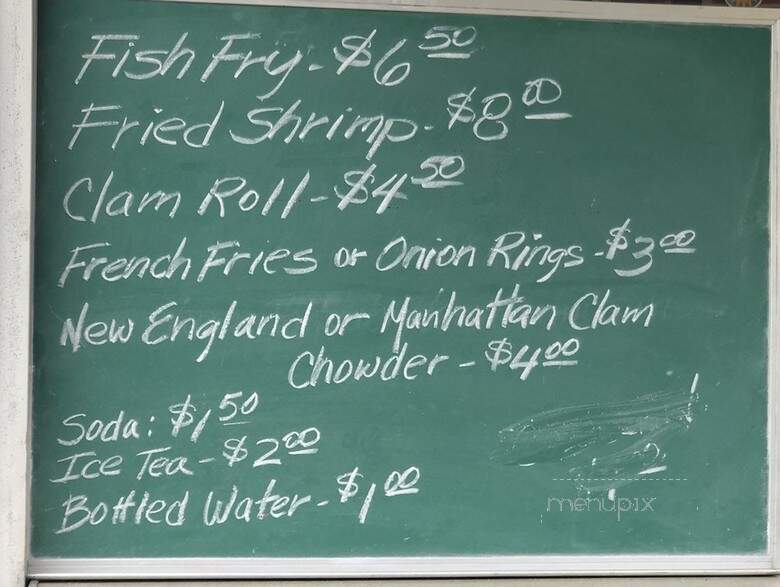 Fish Fry - $6 50
Fried Shrimp - $8 00
Clam Roll - $4 50
French Fries or Onion Rings - $3 00
New England or Manhattan Clam
Chowder - $4 00
Soda: $1 50
Ice Tea - $2 00
Bottled Water - $1 00
menupix